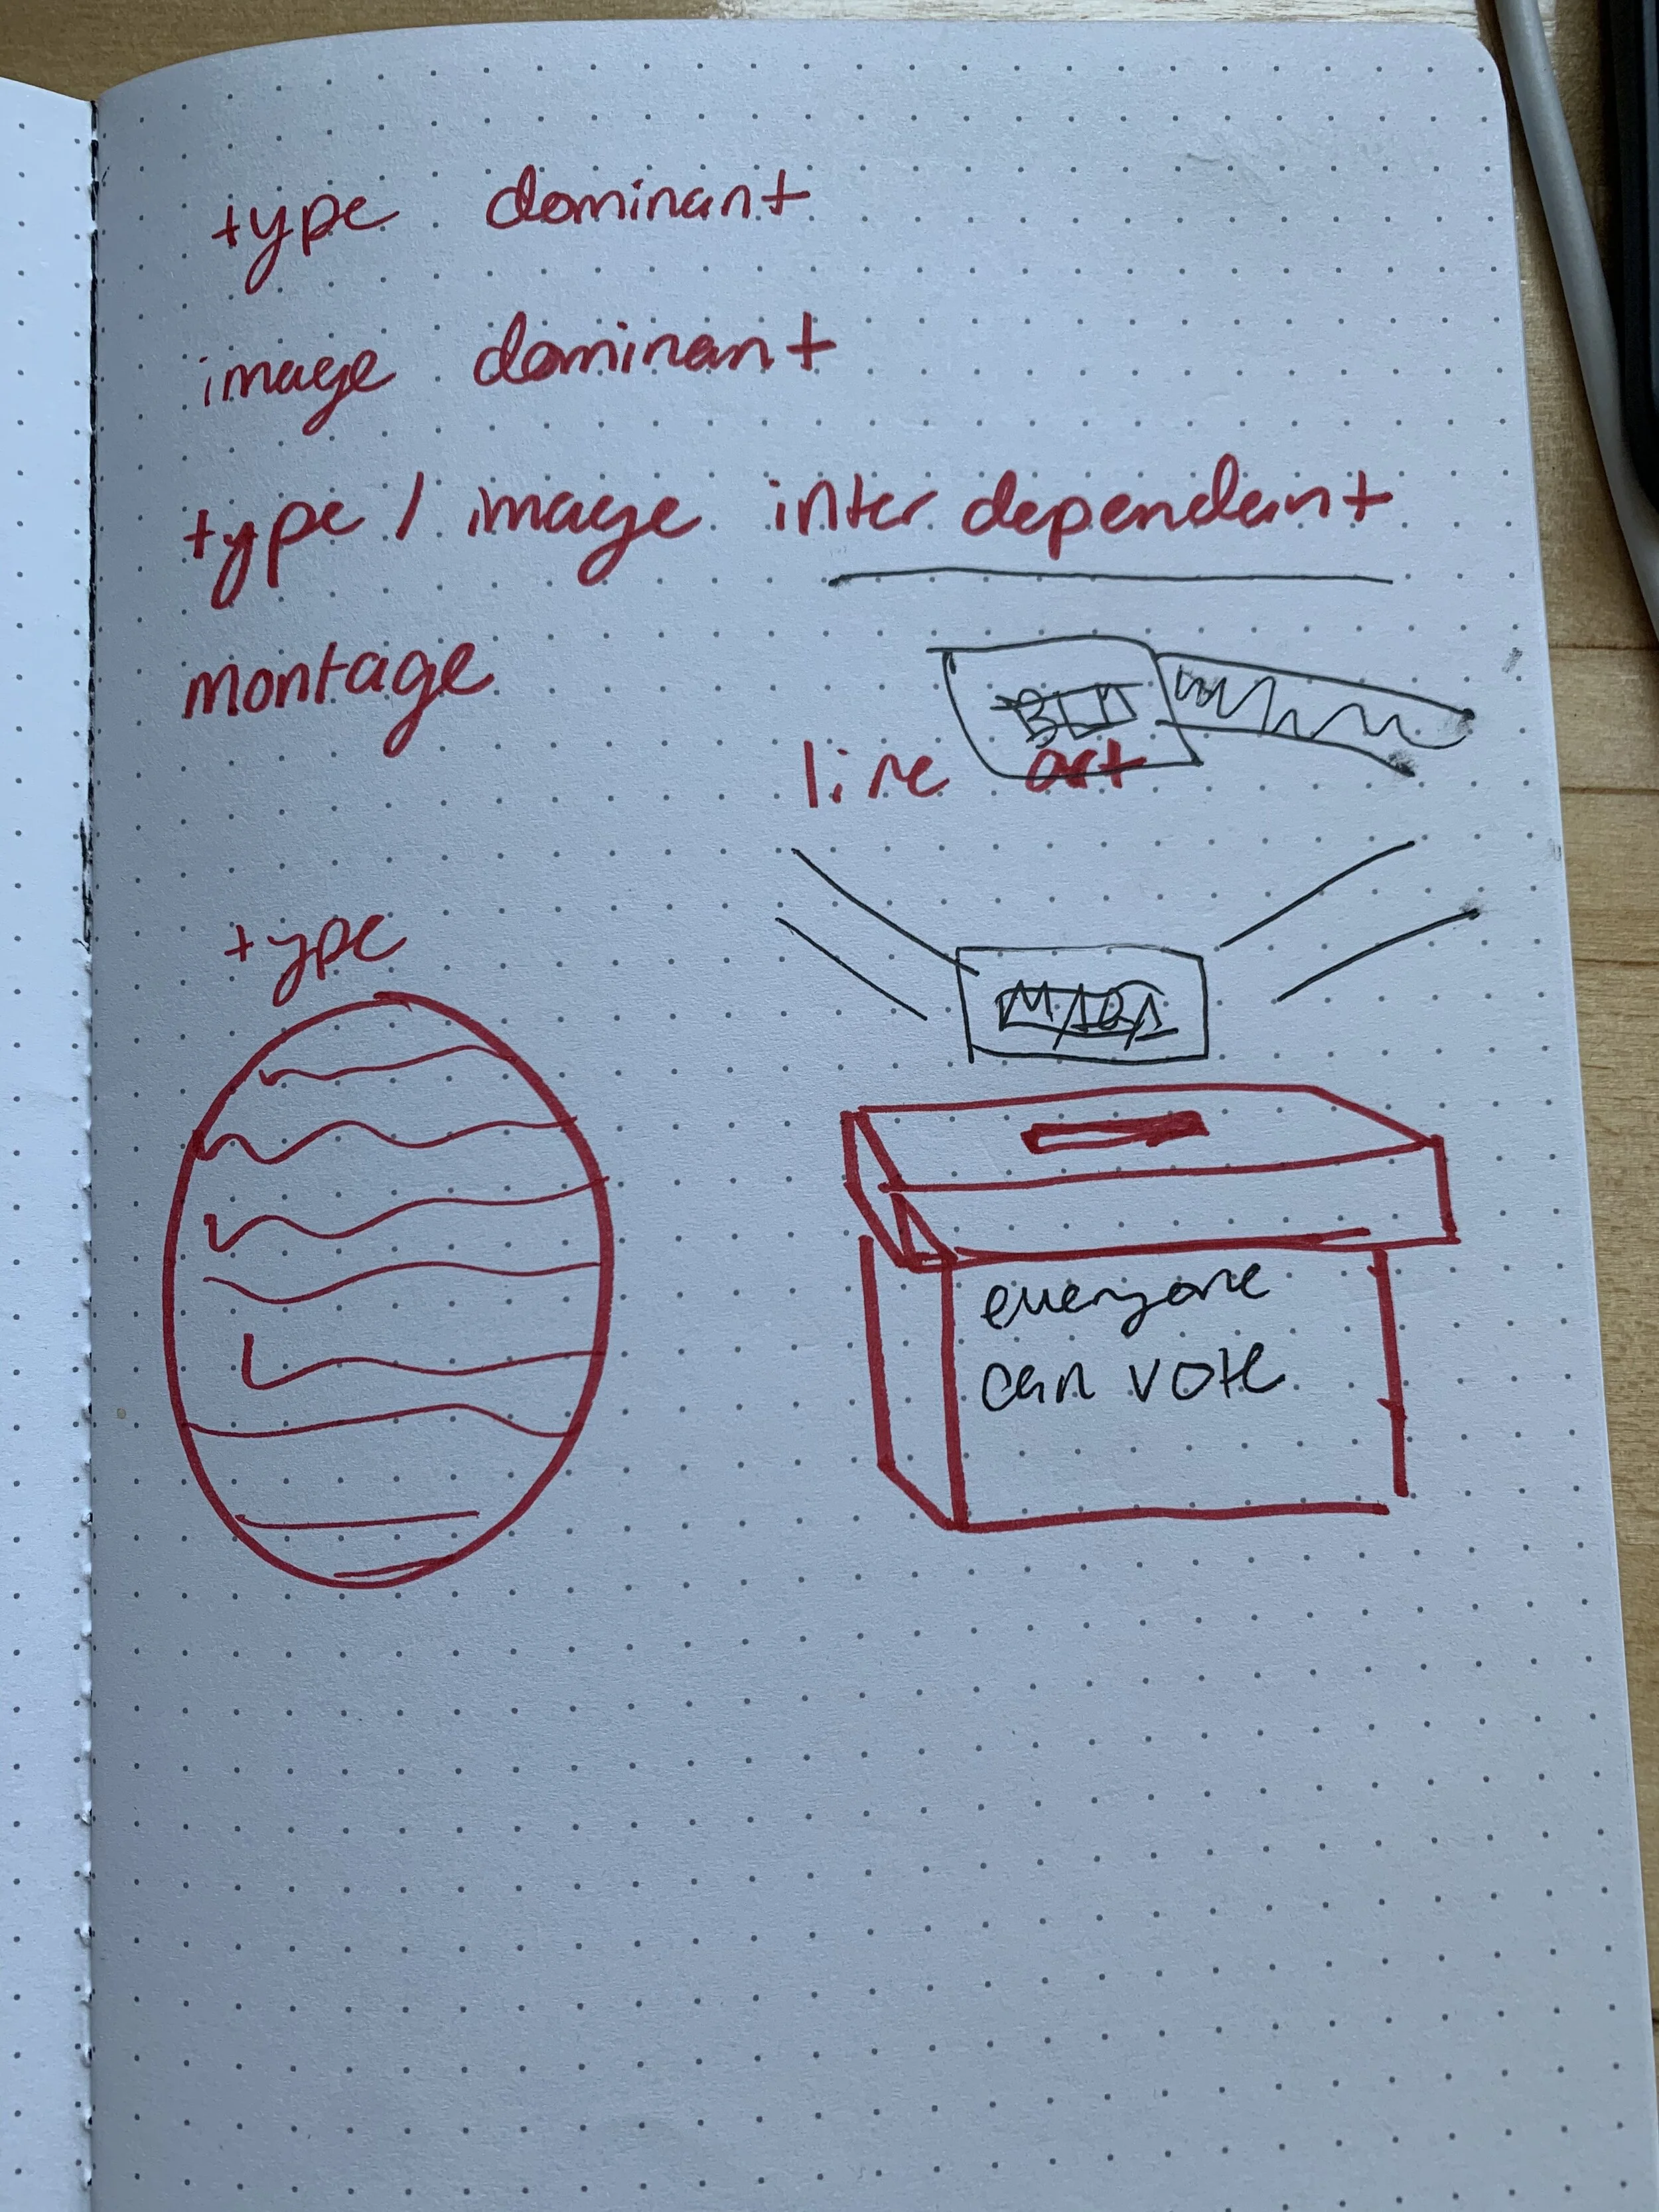 type dominant
image dominant
type / image inter dependant
montage
line art
type
everyone
can vote